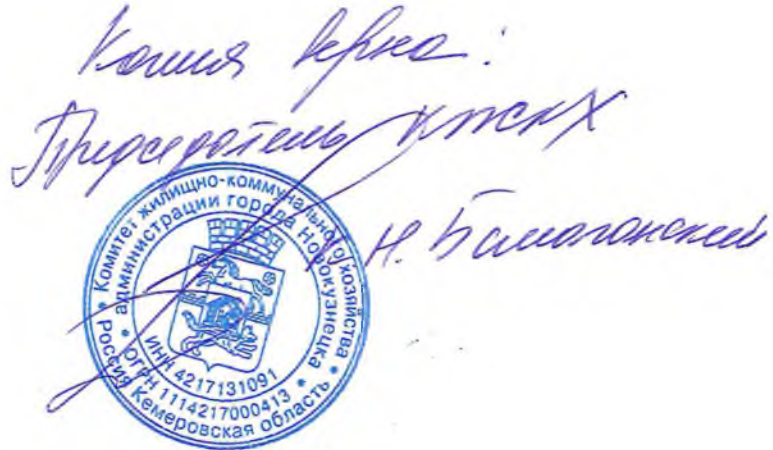 Копия верна:
Председатель КЖКХ
Н. Баклаганский
Комитет жилищно-коммунального хозяйства
администрации города Новокузнецка
ИНН 4217131091
ОГРН 1114217000413
Россия Кемеровская область